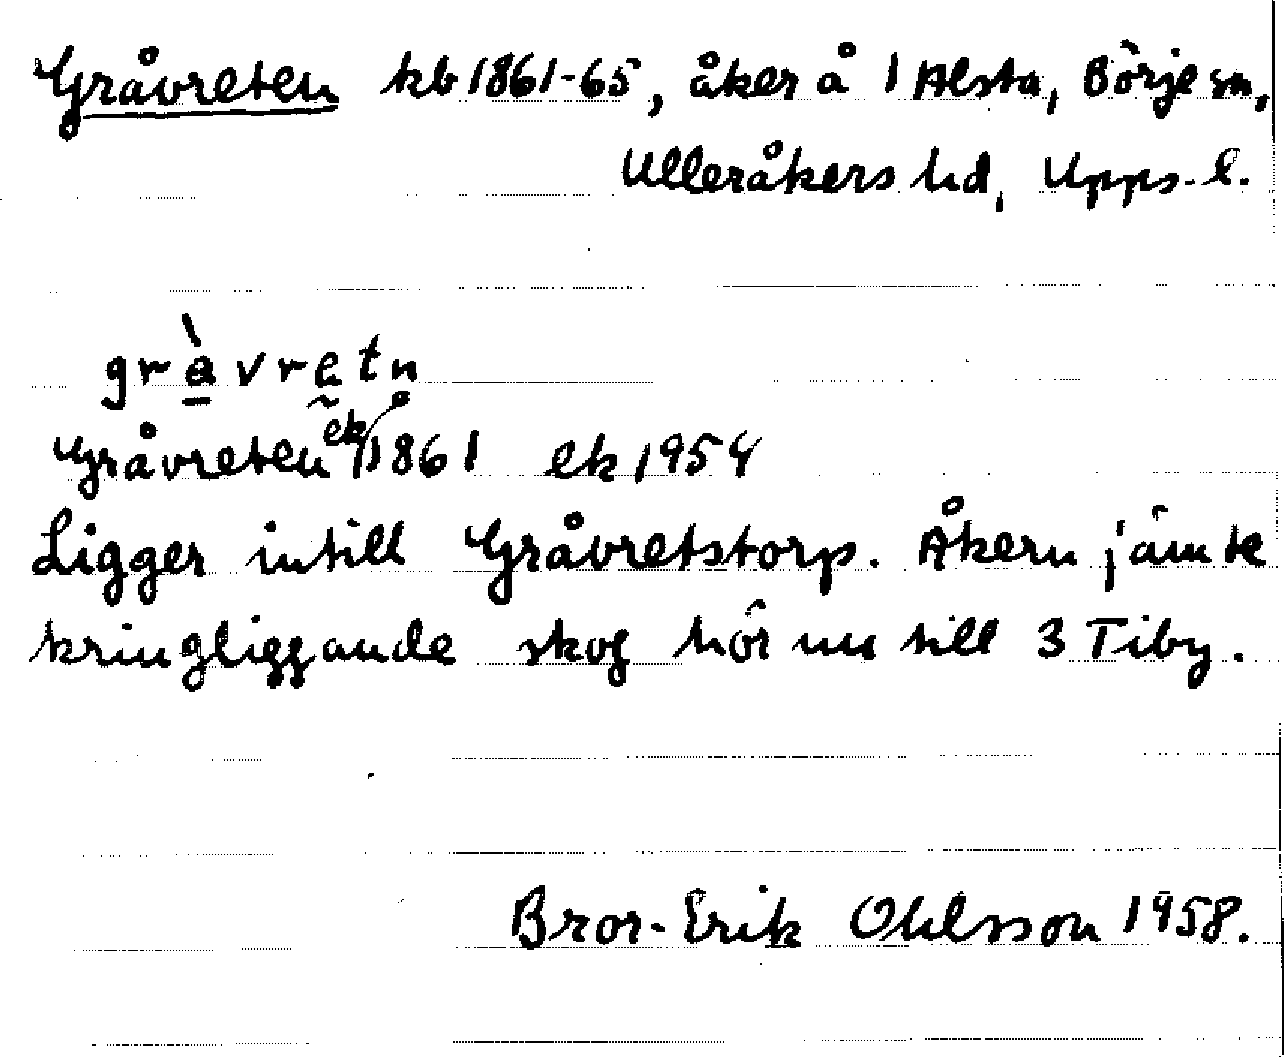 Gråvreten kb 1861-65, åker å 1 Alsta, Börje sn,
Ulleråkers hd, Upps. l.
gràvretn̥
Gråvreten ek 1861 ek 1954
Ligger intill Gråvretstorp. Åkern jämte
kringliggande skog hör nu till 3 Tiby.
Bror-Erik Ohlsson 1958.